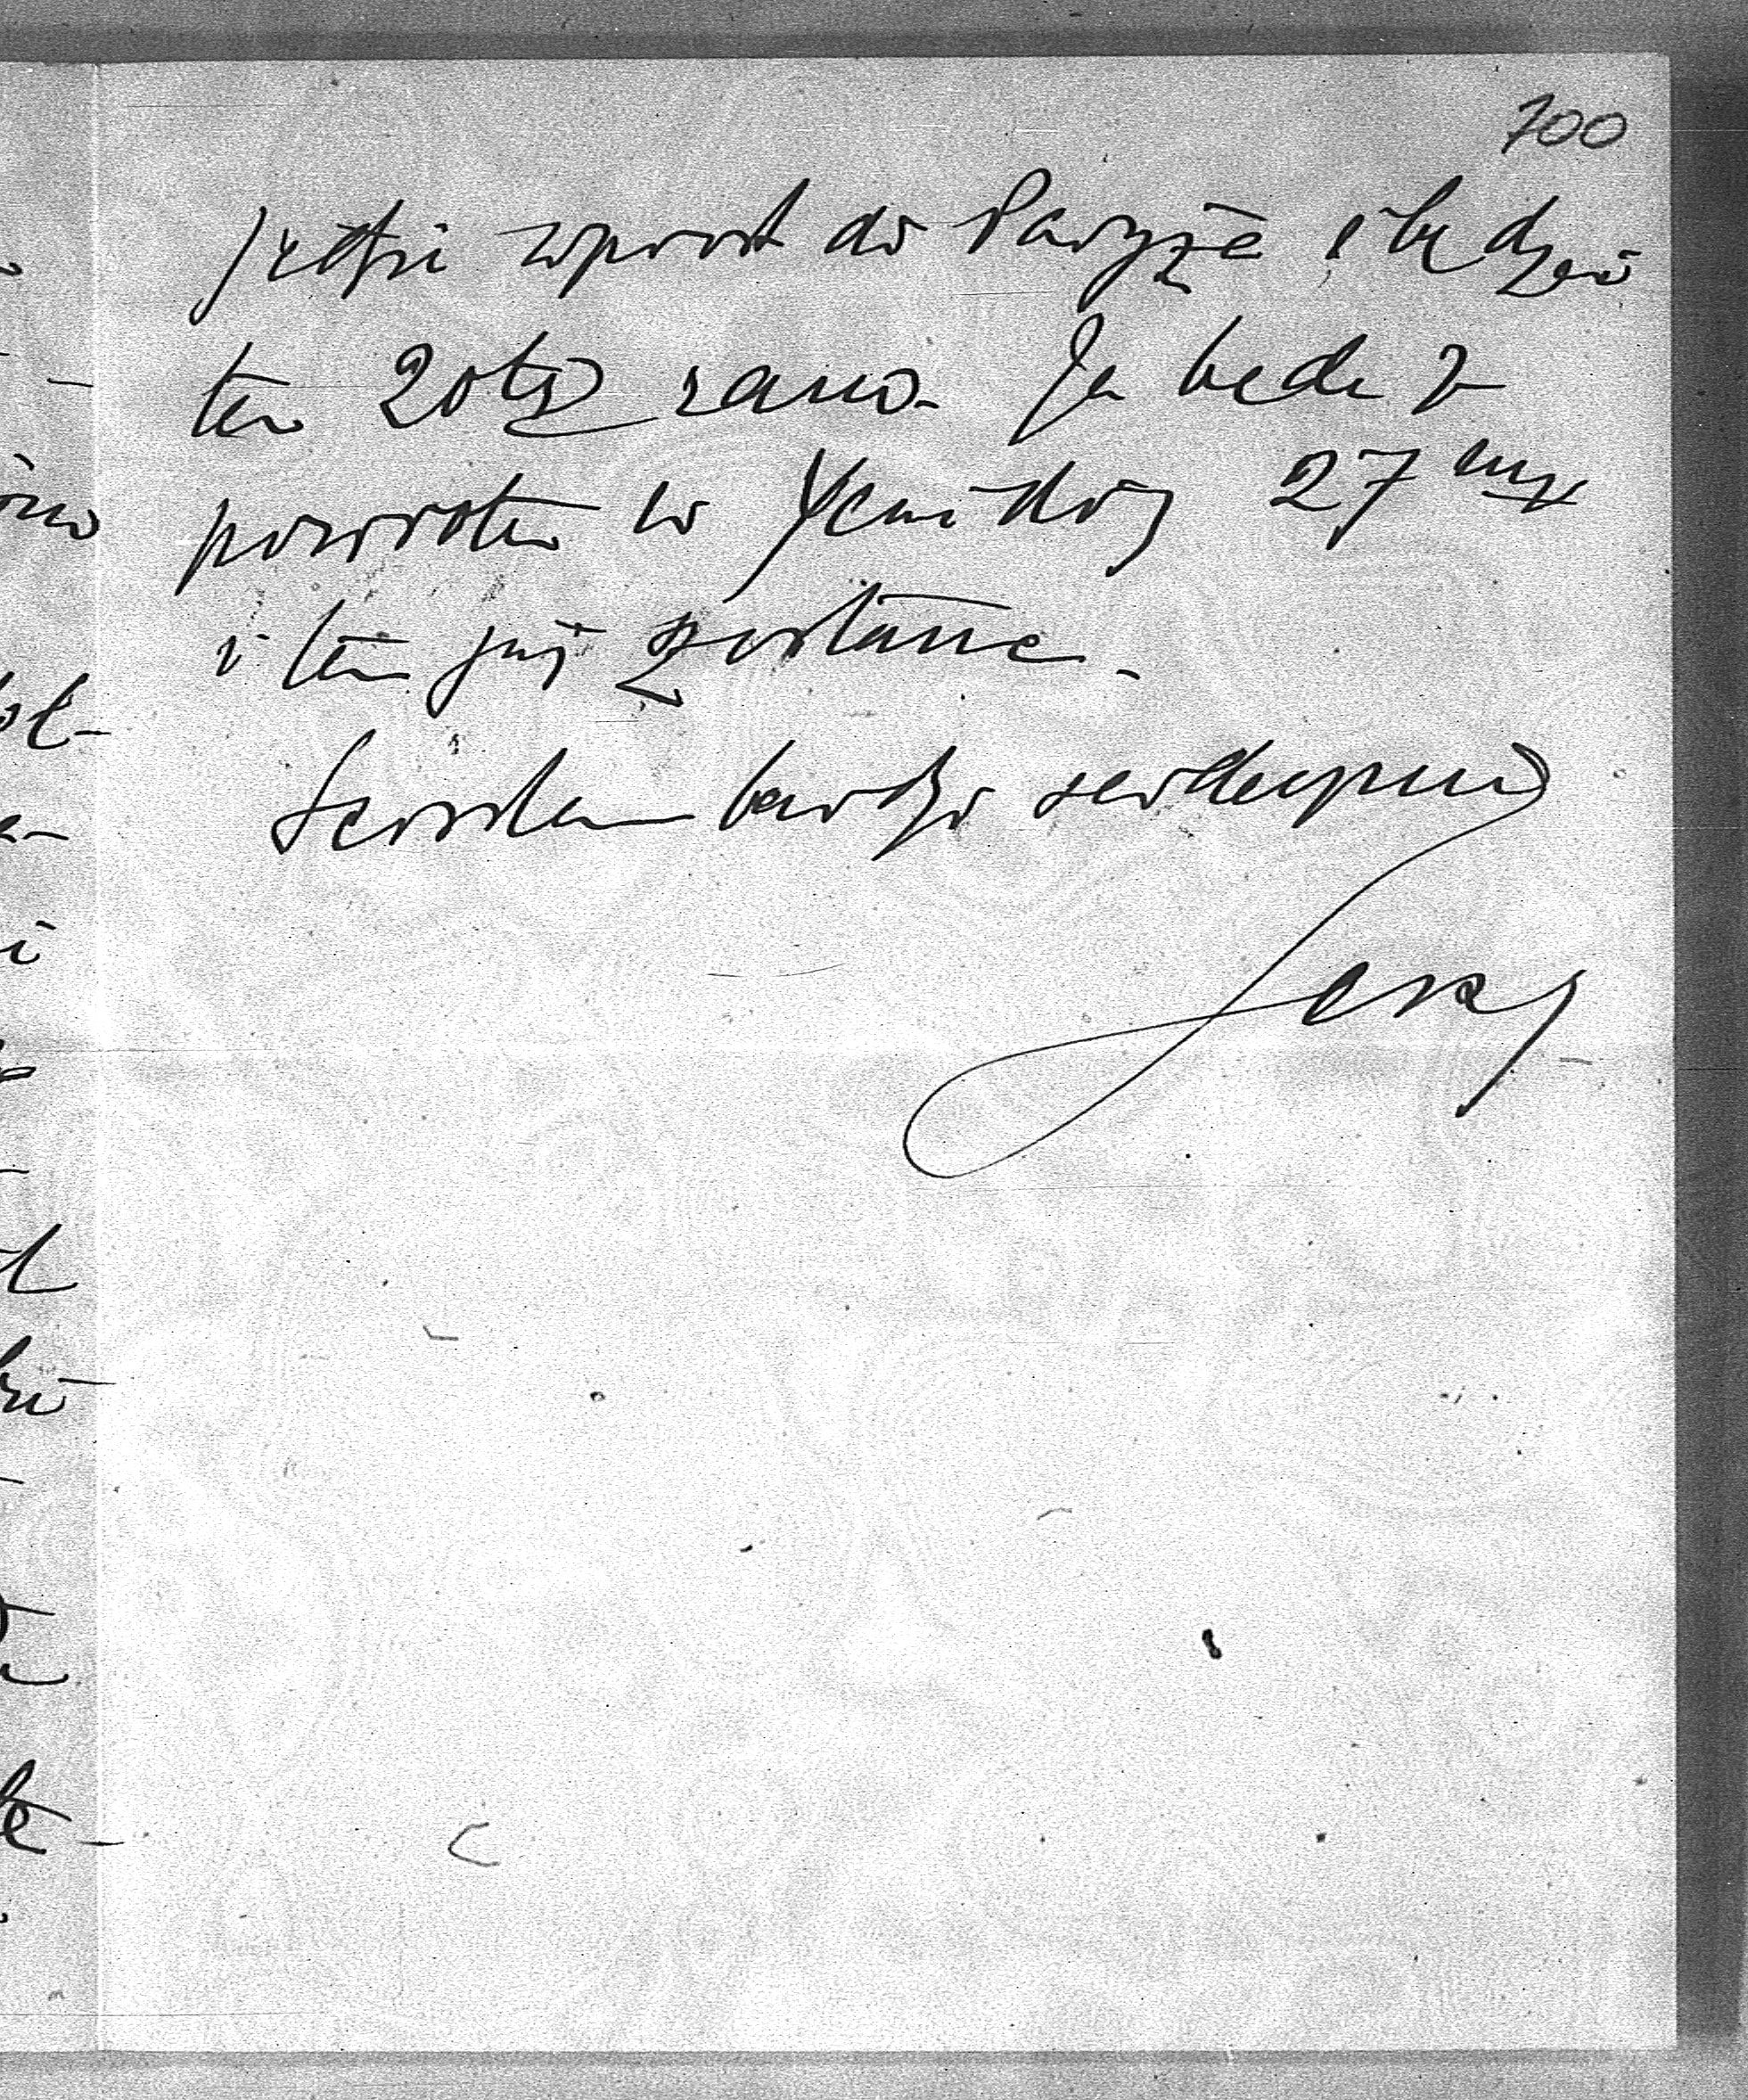 700
jedzie wprost do Paryża i będzie
tam 20tego rano. Ja będę z
powrotem w 27
i tam już zostanę.
Ściskam bardzo serdecznie
Jerzy